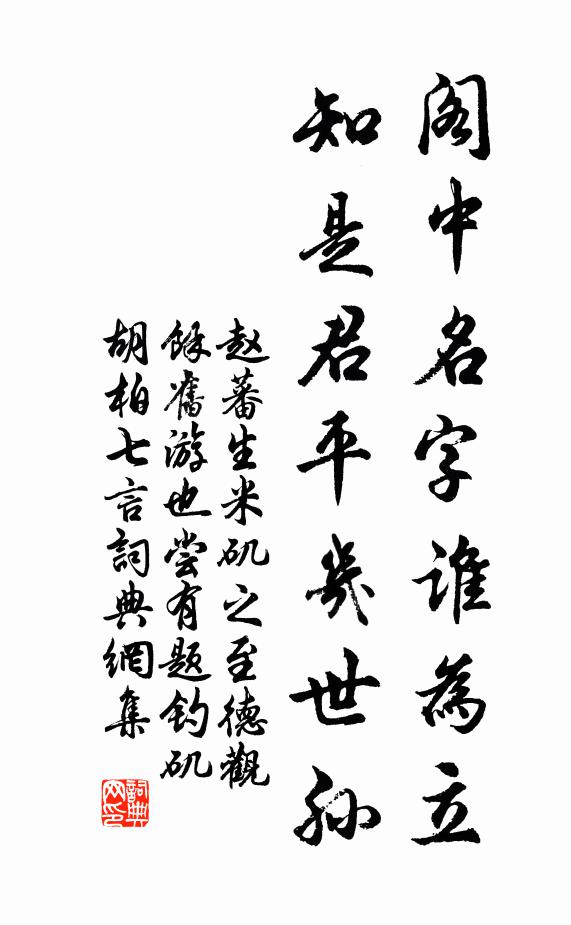 阁中名字誰為立
知是君平幾世孙
赵蕃生米矶之至德觀
餘舊游也尝有题钓矶
胡柏七言詞典網集
詞典网印